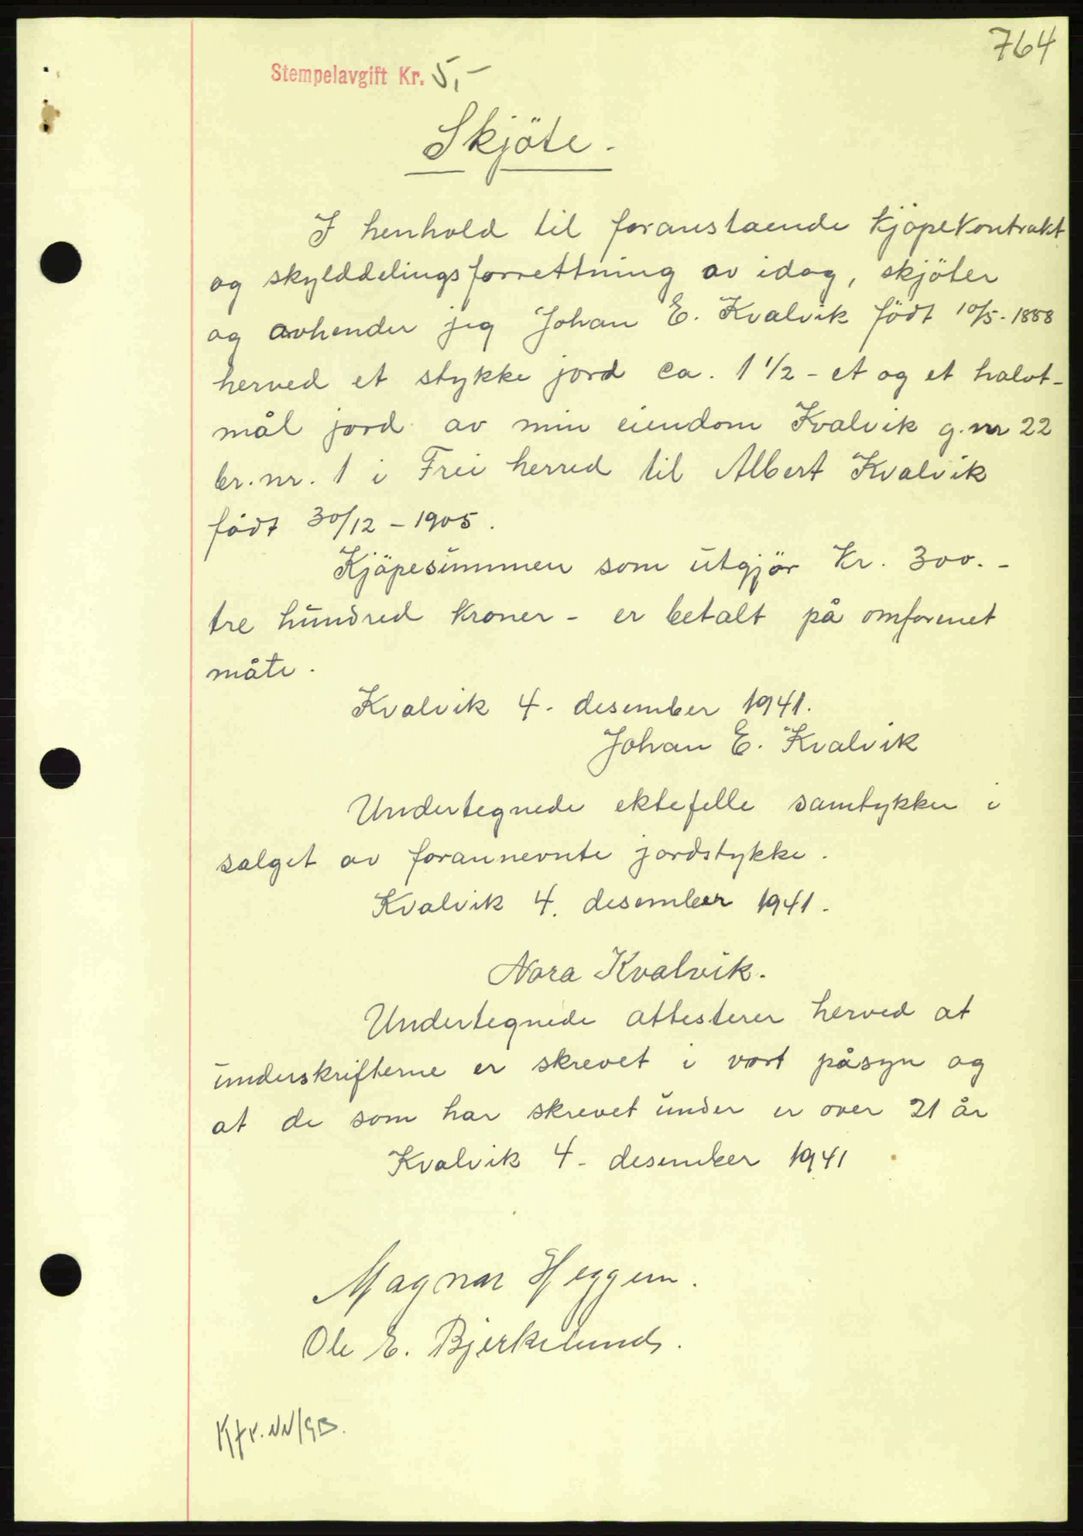 764
Stempelavgift Kr. 5,-
Skjöte.
I henhold til foranstaende kjöpekontrakt
og skylddelingsforrettning av idag, skjöter
og avhender jeg Johan E. Kvalvik födt 10/5-1888
herved et stykke jord ca. 1 1/2 - et og et halvt-
mål jord av min eiendom Kvalvik g.nr 22
br.nr. 1 i Frei herred til Albert Kvalvik
födt 30/12 - 1905.
Kjöpesummen som utgjör Kr. 300.-
tre hundred kroner - er betalt på omforenet
måte.
Kvalvik 4. desember 1941.
Johan E. Kvalvik
Undertegnede ektefelle samtykker i
salget av forannevnte jordstykke.
Kvalvik 4. desember 1941.
Nora Kvalvik.
Undertegnede attesterer herved at
underskrifterne er skrevet i vort påsyn og
at de som har skrevet under er over 21 år
Kvalvik 4. desember 1941
Magnar Heggem.
Ole E. Bjerkelund.
Kfr. NN/GB.